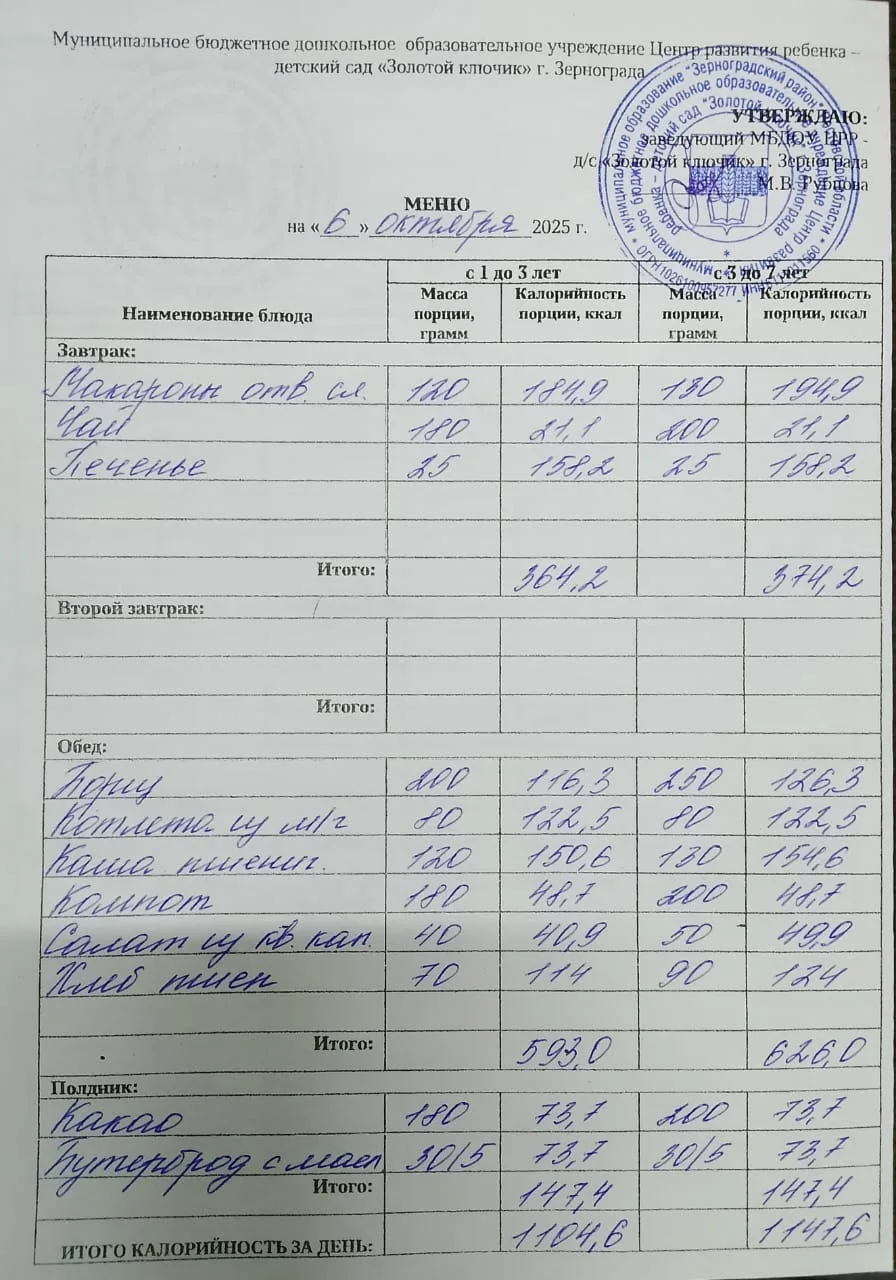 Муниципальное бюджетное дошкольное образовательное учреждение Центр развития ребенка –
детский сад «Золотой ключик» г. Зернограда
УТВЕРЖДАЮ:
заведующий МБДОУ ЦРР -
д/с «Золотой ключик» г. Зернограда
М.В. Рубцова
МЕНЮ
на « 6 » октября 2025 г.
Наименование блюда с 1 до 3 лет с 3 до 7 лет
Масса порции, грамм Калорийность порции, ккал Масса порции, грамм Калорийность порции, ккал
Завтрак:
Макароны отв. сл. 120 184,9 130 194,9
Чай 180 21,1 200 21,1
Печенье 25 158,2 25 158,2
Итого: 364,2 374,2
Второй завтрак:
Итого:
Обед:
Борщ 200 116,3 250 126,3
Котлета из м/г 80 122,5 80 122,5
Каша пшенич. 120 150,6 130 154,6
Компот 180 48,7 200 48,7
Салат из кв. кап. 40 40,9 50 49,9
Хлеб пшен 70 114 90 124
Итого: 593,0 626,0
Полдник:
Какао 180 73,7 200 73,7
Бутерброд с масл 30/5 73,7 30/5 73,7
Итого: 147,4 147,4
ИТОГО КАЛОРИЙНОСТЬ ЗА ДЕНЬ: 1104,6 1147,6